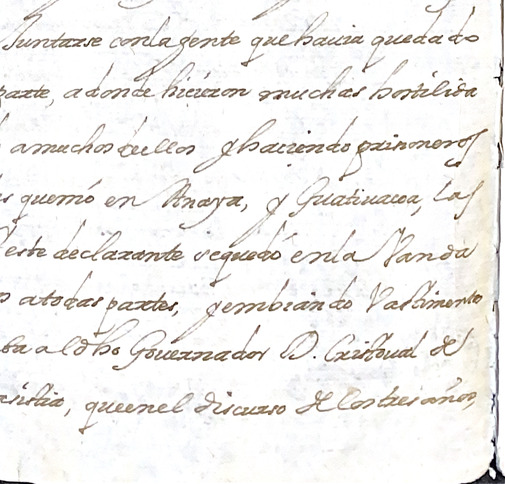 Juntarse conla gente que havia quedado
parte, adonde hicieron muchas hostilida
amuchos dellos y haciendo prisioneros
quemó en Anaya, y Guativacoa, las
este declarante sequedó enla Vanda
atodas partes, y embiando Vastimento
al dho Governador D. Cristoval de
queenel discurso de los tres años,